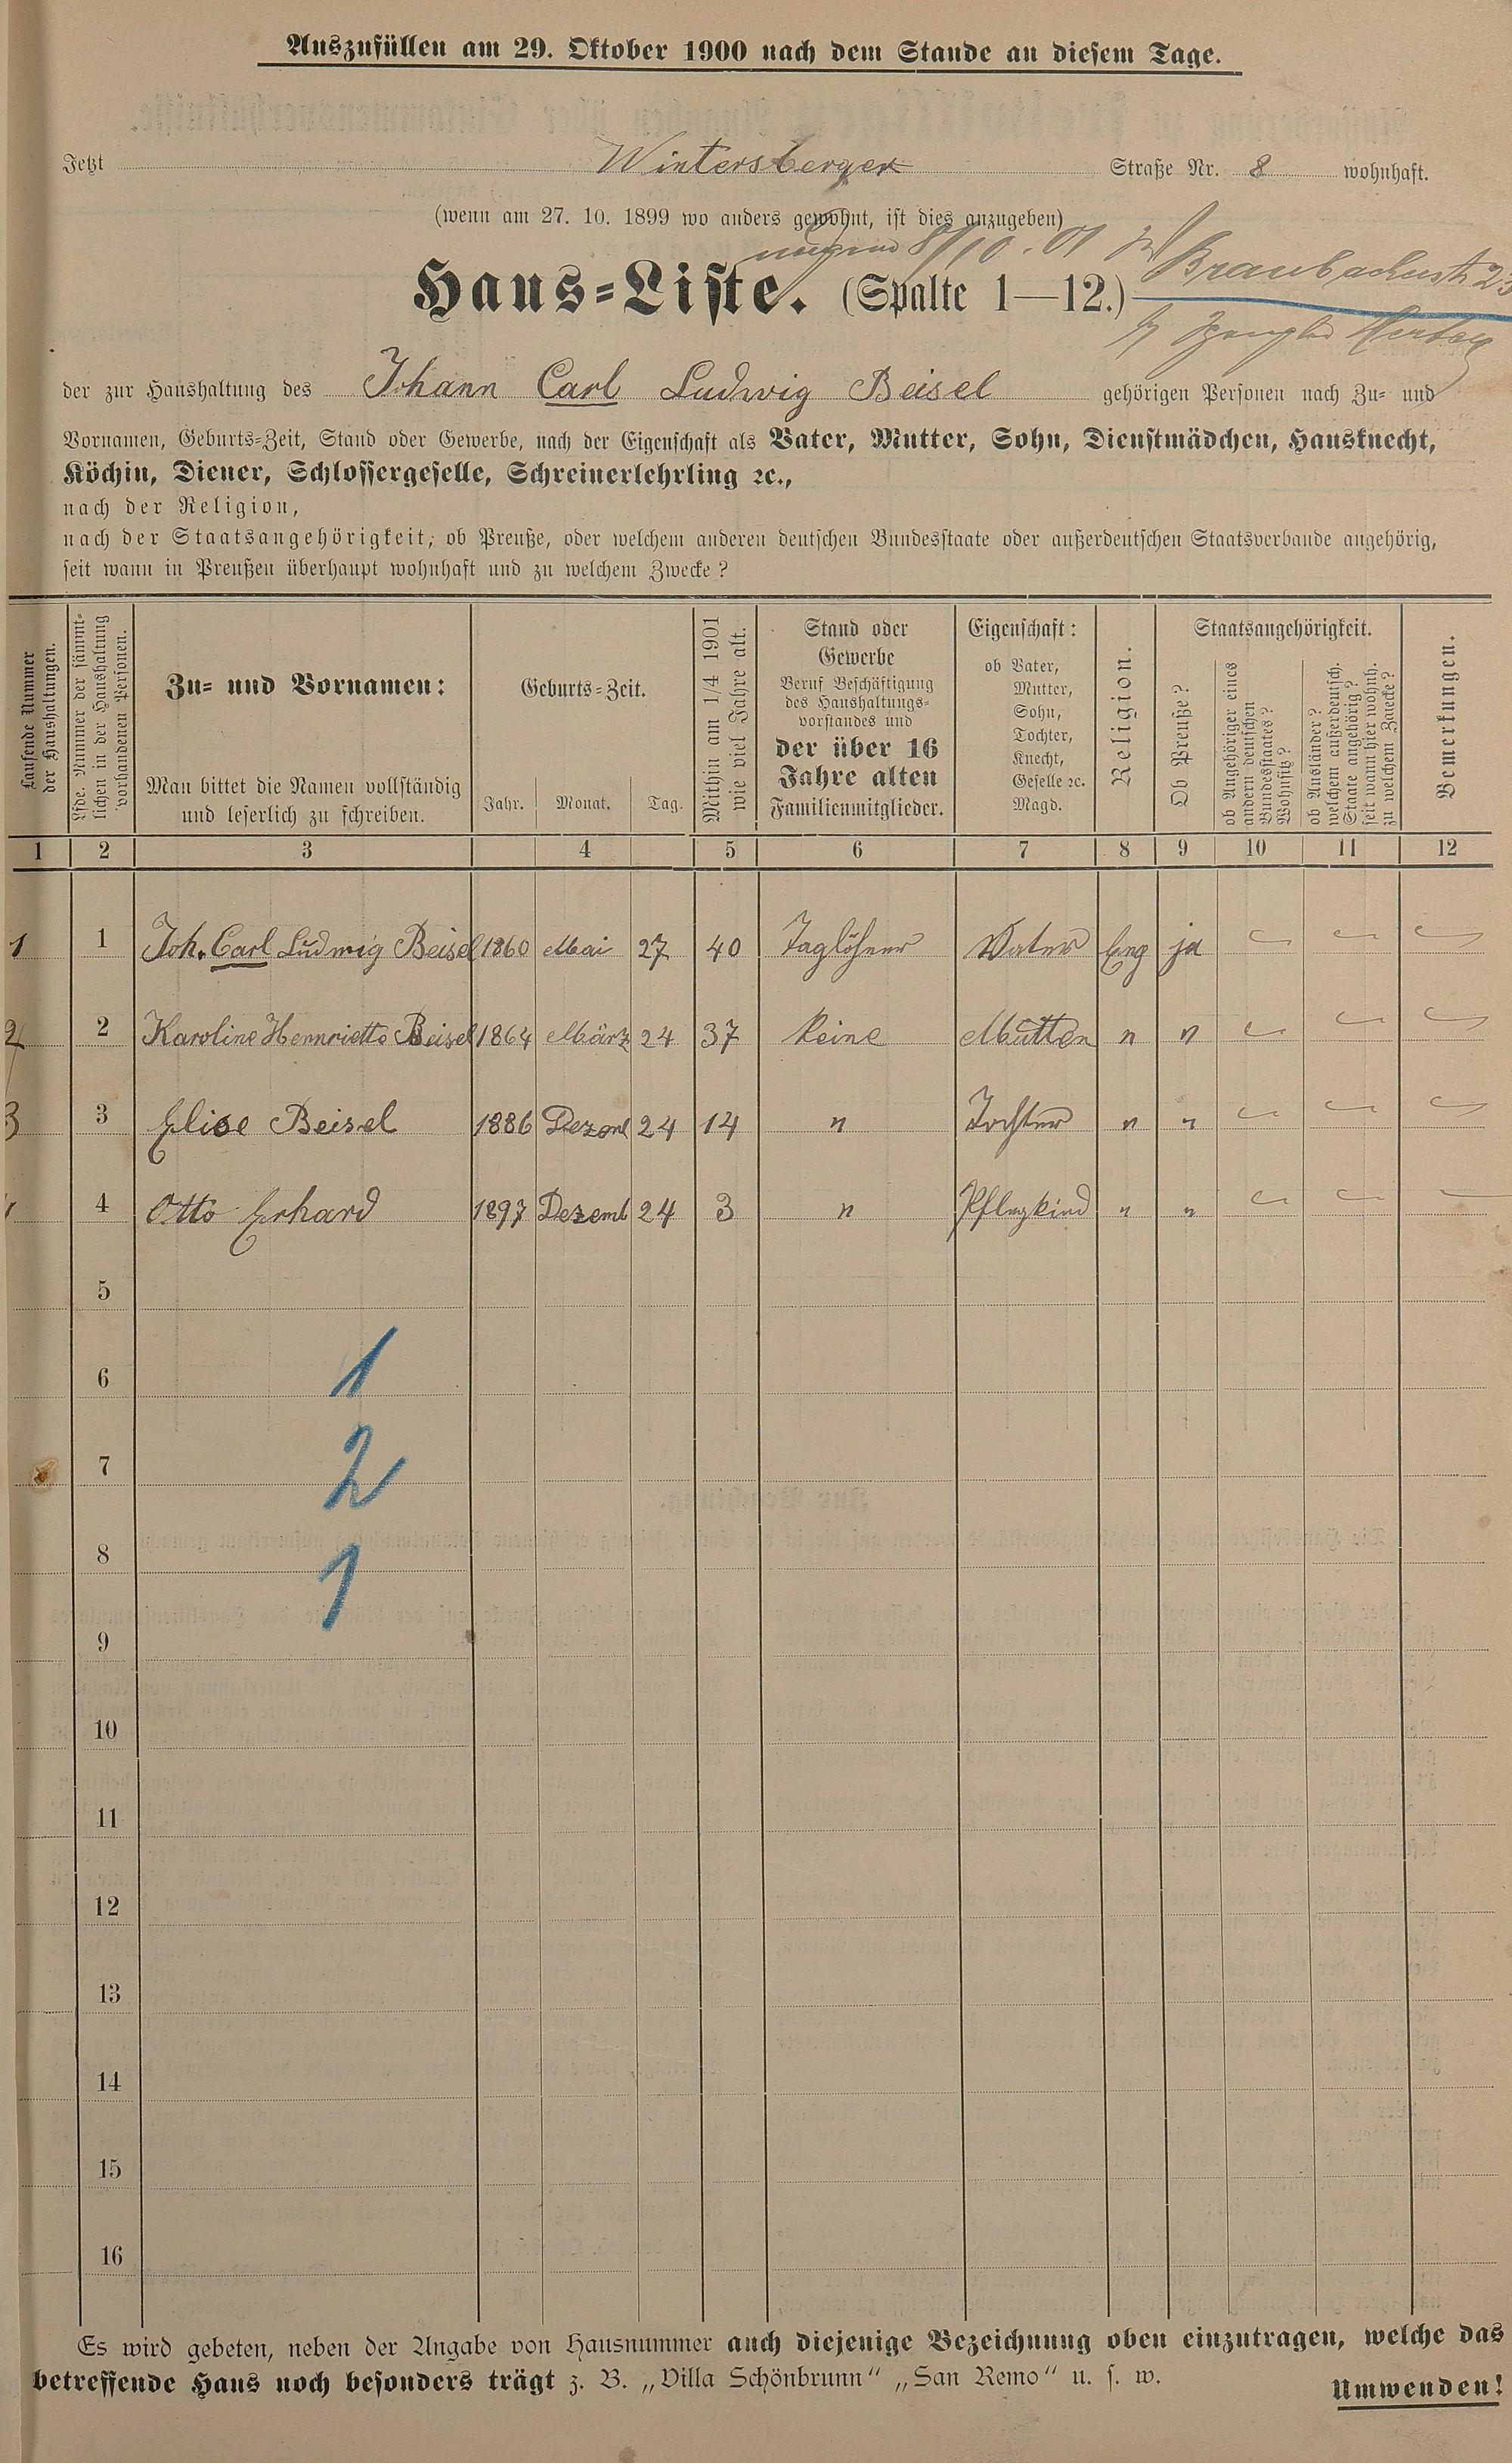 Auszufüllen am 29. Oktober 1900 nach dem Stande an diesem Tage.
Jetzt Wintersberger Straße Nr. 8 wohnhaft.
(wenn am 27. 10. 1899 wo anders gewohnt, ist dies anzugeben)
8/10. 01
Braubacherstr 23
Haus-Liste. (Spalte 1—12.)
der zur Haushaltung des Johann Carl Ludwig Beisel gehörigen Personen nach Zu- und
Vornamen, Geburts-Zeit, Stand oder Gewerbe, nach der Eigenschaft als Vater, Mutter, Sohn, Dienstmädchen, Hausknecht,
Köchin, Diener, Schlossergeselle, Schreinerlehrling ꝛc.,
nach der Religion,
nach der Staatsangehörigkeit, ob Preuße, oder welchem anderen deutschen Bundesstaate oder außerdeutschen Staatsverbande angehörig,
seit wann in Preußen überhaupt wohnhaft und zu welchem Zwecke?
Laufende Nummer
der Haushaltungen.
Lfde. Nummer der sämmt-
lichen in der Haushaltung
vorhandenen Personen.
Zu- und Vornamen:
Man bittet die Namen vollständig
und leserlich zu schreiben.
Geburts-Zeit.
Jahr. Monat. Tag.
Mithin am 1/4 1901
wie viel Jahre alt.
Stand oder
Gewerbe
Beruf Beschäftigung
des Haushaltungs-
vorstandes und
der über 16
Jahre alten
Familienmitglieder.
Eigenschaft:
ob Vater,
Mutter,
Sohn,
Tochter,
Knecht,
Geselle ꝛc.
Magd.
Religion.
Staatsangehörigkeit.
Ob Preuße?
ob Angehöriger eines
andern deutschen
Bundesstaates?
Wohnsitz?
ob Ausländer?
welchem außerdeutsch.
Staate angehörig?
seit wann hier wohnh.
zu welchem Zwecke?
Bemerkungen.
1 2 3 4 5 6 7 8 9 10 11 12
1 1 Joh. Carl Ludwig Beisel 1860 Mai 27 40 Taglöhner Vater Evg ja
2 2 Karoline Hennriette Beisel 1864 März 24 37 keine Mutter " "
3 3 Elise Beisel 1886 Dezemb 24 14 " Tochter " "
4 Otto Erhard 1897 Dezemb 24 3 " Pflegkind " "
5
6 1
7 2
8 1
9
10
11
12
13
14
15
16
Es wird gebeten, neben der Angabe von Hausnummer auch diejenige Bezeichnung oben einzutragen, welche das
betreffende Haus noch besonders trägt z. B. „Villa Schönbrunn“ „San Remo“ u. s. w.
Umwenden!